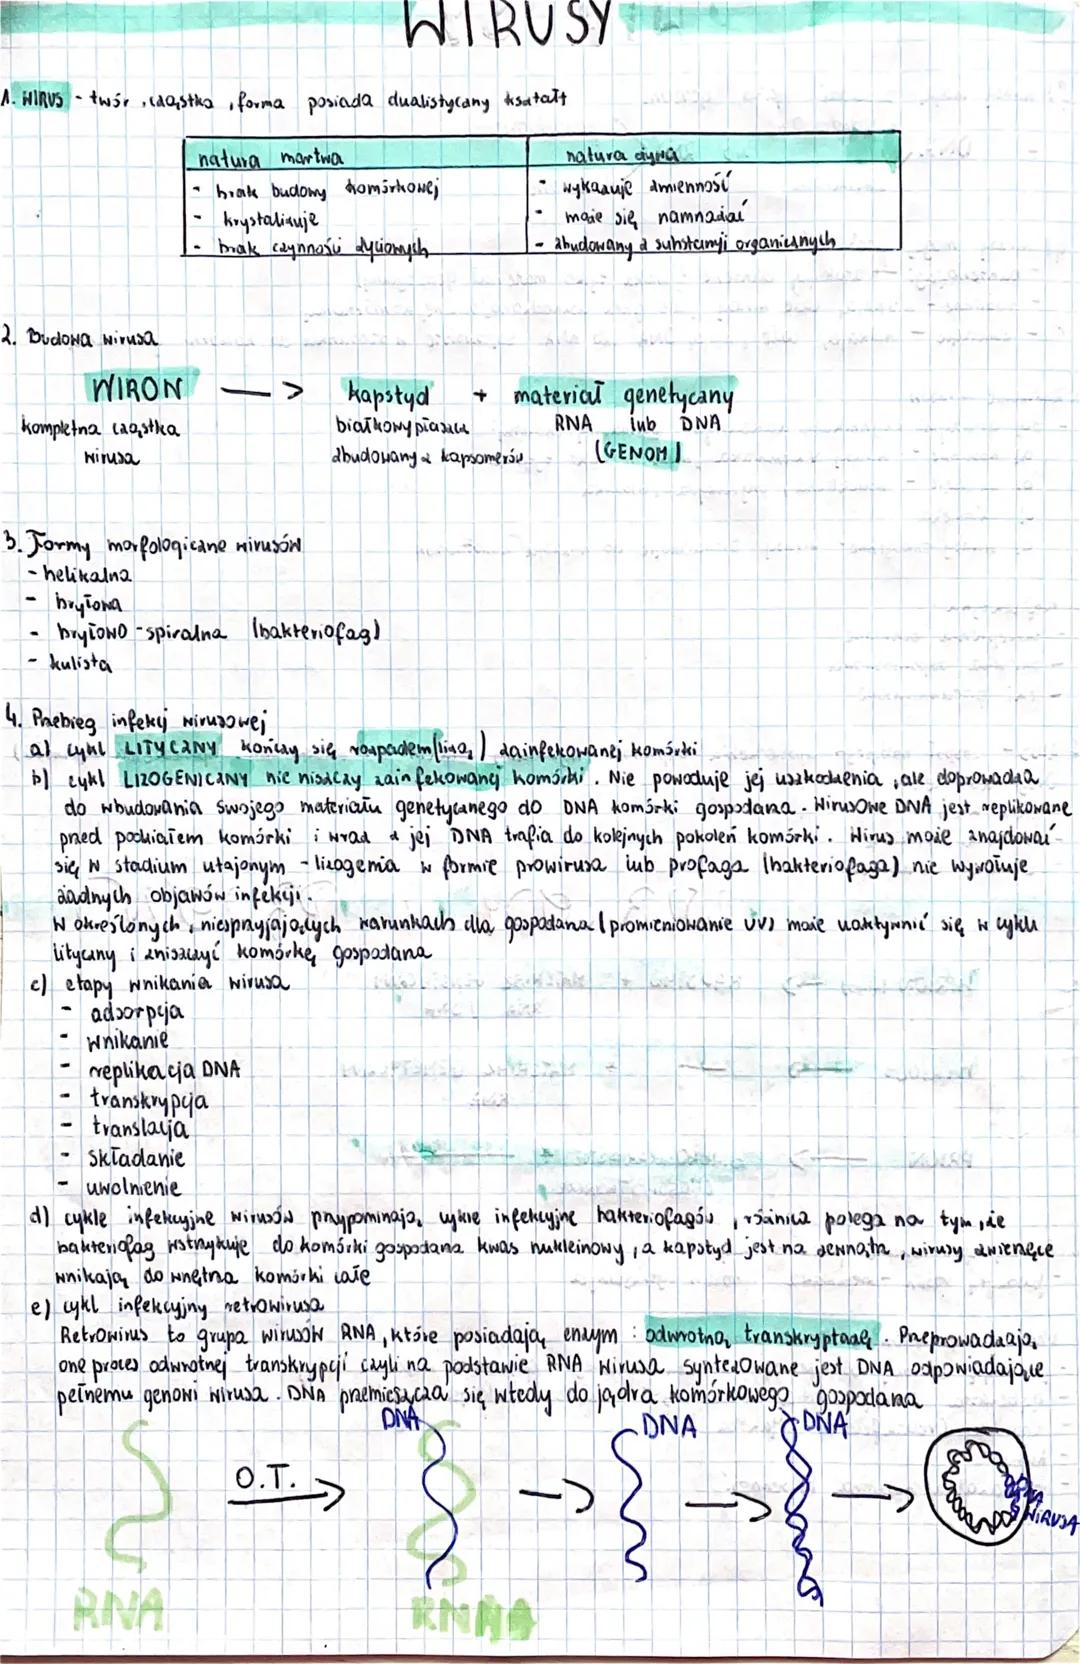 WIRUSY
1. WIRUS - twór, cząstka, forma posiada dualistyczny kształt
natura martwa
natura żywa
- brak budowy komórkowej
- wykazuje zmienność
- krystalizuje
- może się namnażać
- brak czynności życiowych
- zbudowany z substancji organicznych
2. Budowa wirusa
WIRON —> kapstyd + materiał genetyczny
kompletna cząstka
białkowy płaszcz
RNA lub DNA
wirusa
zbudowany z kapsomerów
(GENOM)
3. Formy morfologiczne wirusów
- helikalna
- bryłowa
- bryłowo-spiralna (bakteriofag)
- kulista
4. Przebieg infekcji wirusowej
a) cykl LITYCZNY kończy się rozpadem (lizą) zainfekowanej komórki
b) cykl LIZOGENICZNY nie niszczy zainfekowanej komórki. Nie powoduje jej uszkodzenia, ale doprowadza
do wbudowania swojego materiału genetycznego do DNA komórki gospodarza. Wirusowe DNA jest replikowane
przed podziałem komórki i wraz z jej DNA trafia do kolejnych pokoleń komórki. Wirus może znajdować
się w stadium utajonym - lizogenia w formie prowirusa lub profaga (bakteriofaga) nie wywołuje
żadnych objawów infekcji.
W określonych, niesprzyjających warunkach dla gospodarza (promieniowanie UV) może uaktywnić się w cyklu
lityczny i zniszczyć komórkę gospodarza
c) etapy wnikania wirusa
- adsorpcja
- wnikanie
- replikacja DNA
- transkrypcja
- translacja
- składanie
- uwolnienie
d) cykle infekcyjne wirusów przypominają cykle infekcyjne bakteriofagów, różnica polega na tym, że
bakteriofag wstrzykuje do komórki gospodarza kwas nukleinowy, a kapstyd jest na zewnątrz, wirusy zwierzęce
wnikają do wnętrza komórki całe
e) cykl infekcyjny retrowirusa
Retrowirus to grupa wirusów RNA, które posiadają enzym: odwrotną transkryptazę. Przeprowadzają
one proces odwrotnej transkrypcji czyli na podstawie RNA wirusa syntezowane jest DNA odpowiadające
pełnemu genowi wirusa. DNA przemieszcza się wtedy do jądra komórkowego gospodarza
DNA
DNA
DNA
O.T.
DNA
WIRUSA
RNA
RNA